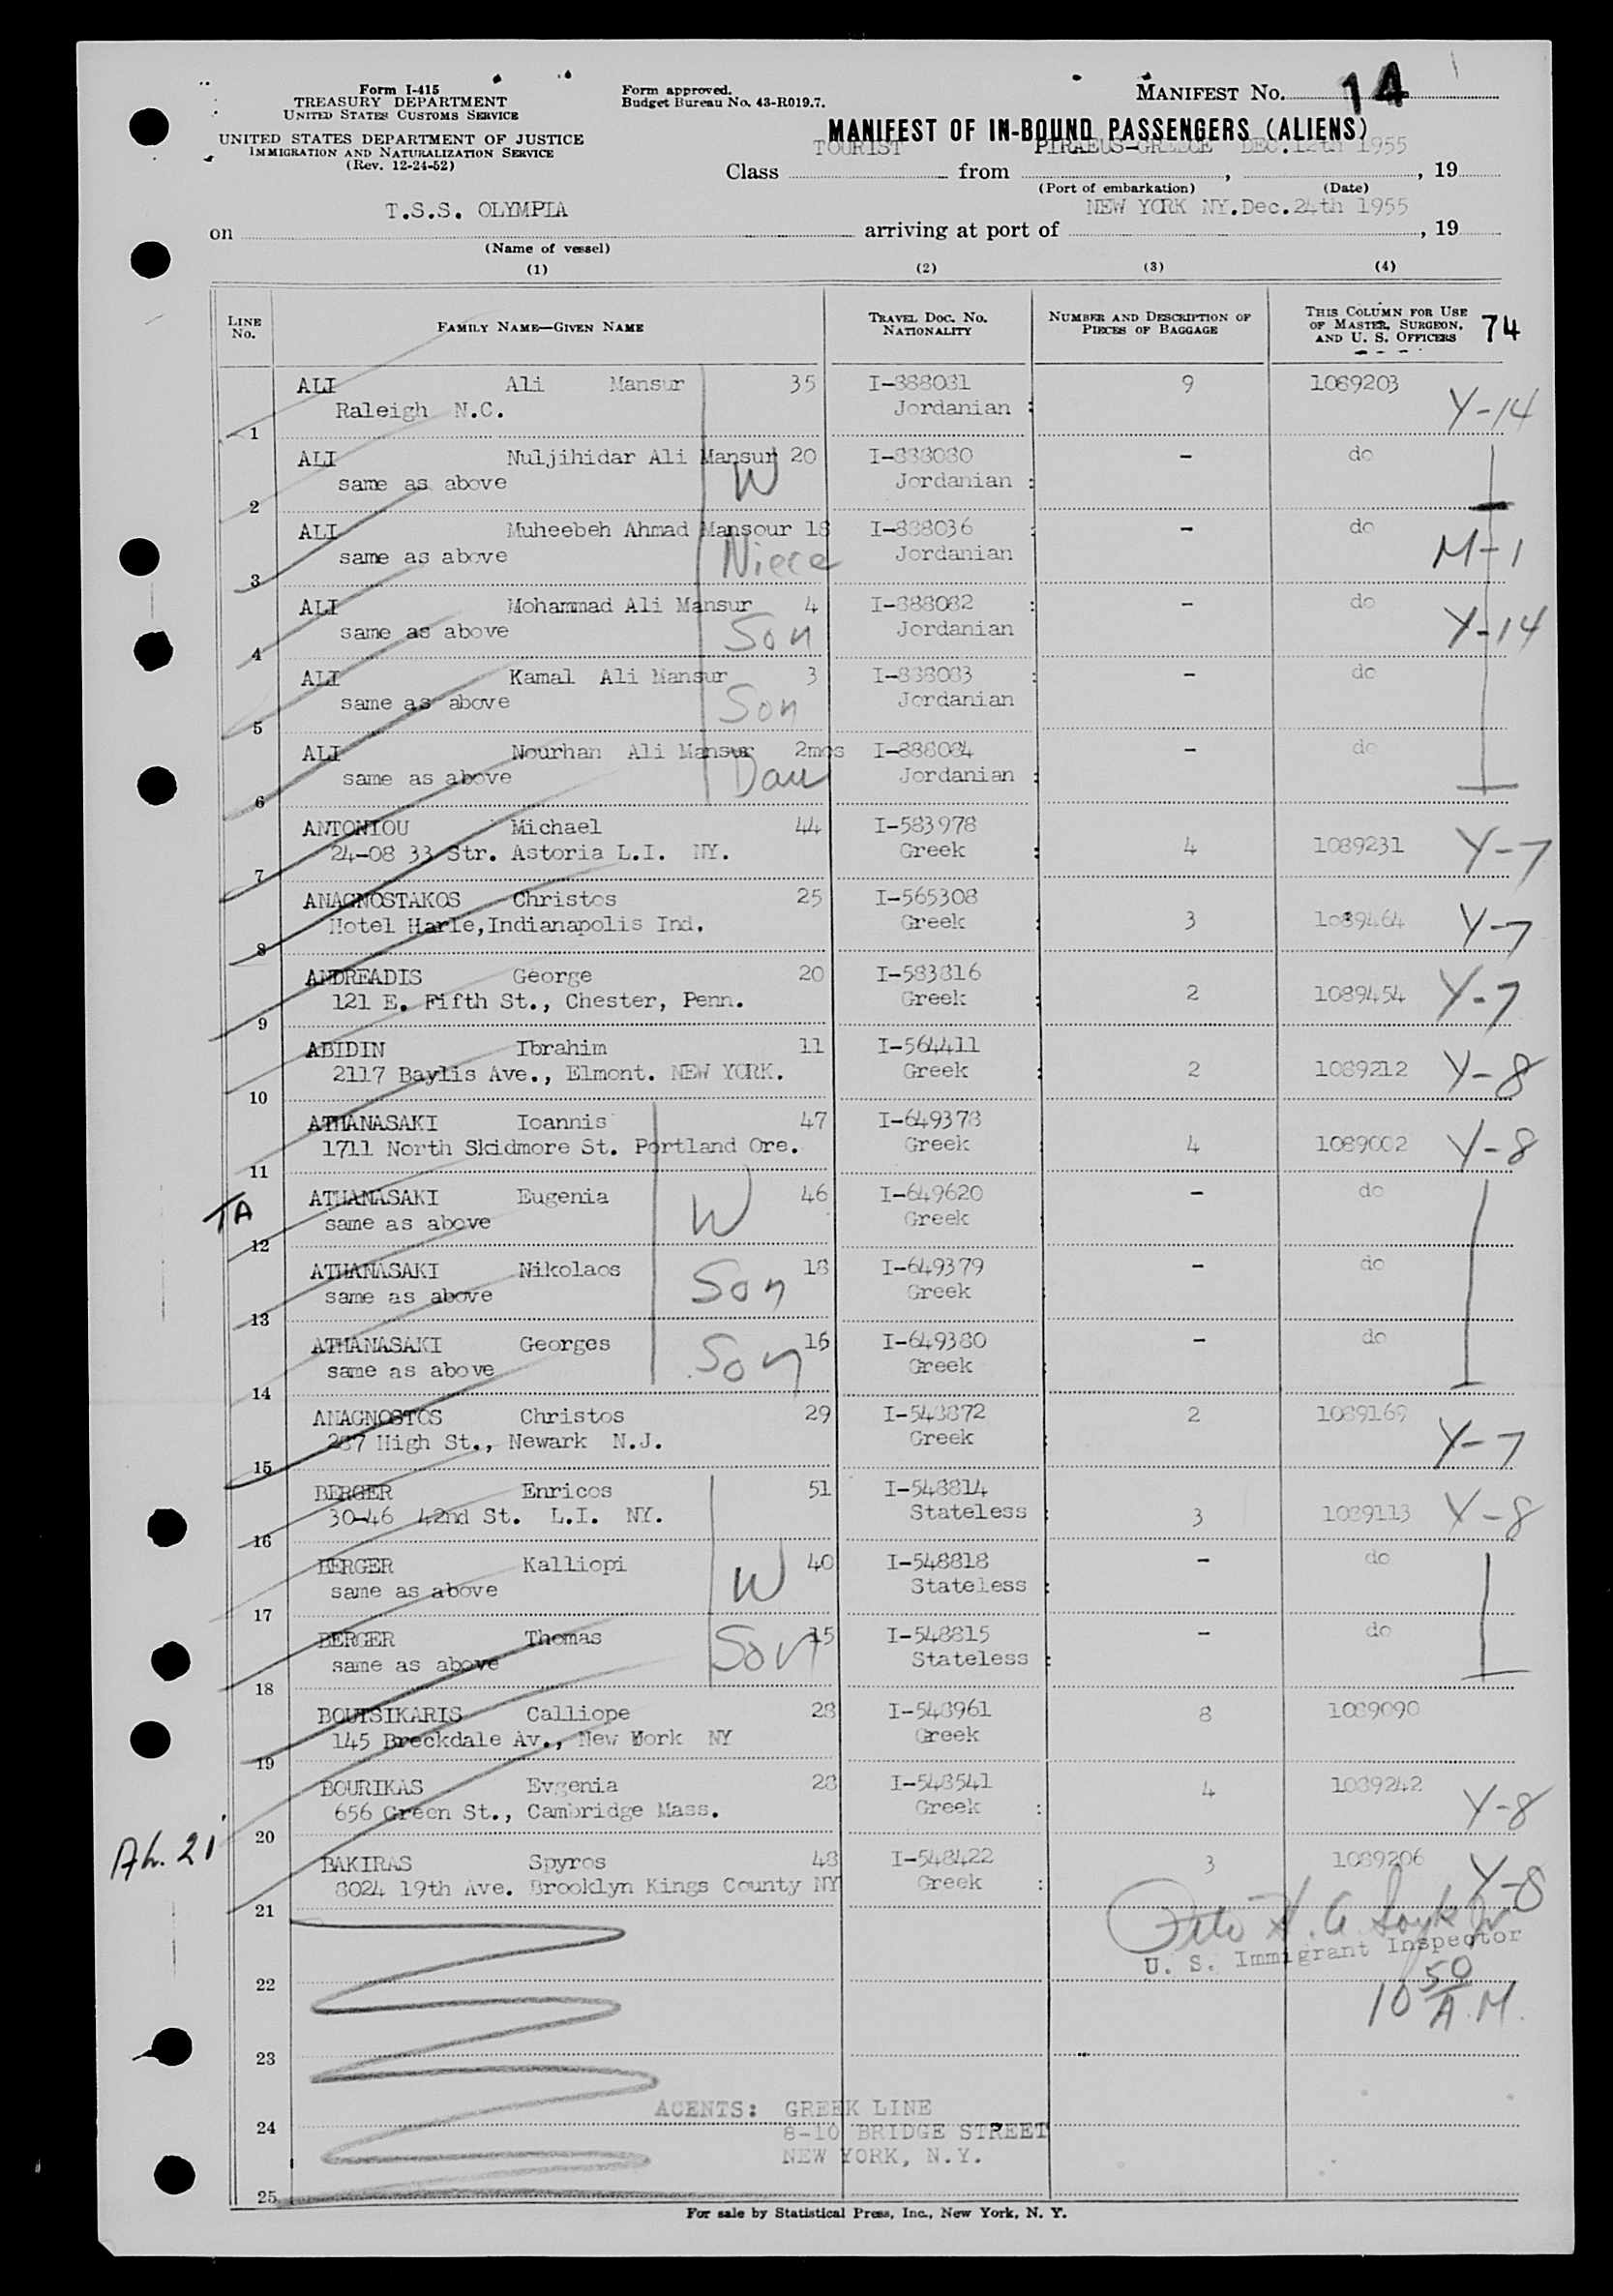 Form I-415
TREASURY DEPARTMENT
UNITED STATES CUSTOMS SERVICE
UNITED STATES DEPARTMENT OF JUSTICE
IMMIGRATION AND NATURALIZATION SERVICE
(Rev. 12-24-52)
Form approved.
Budget Bureau No. 43-R019.7.
MANIFEST NO. 14
MANIFEST OF IN-BOUND PASSENGERS (ALIENS)
TOURIST PIRAEUS-GREECE DEC.12th 1955
Class from , , 19
(Port of embarkation) (Date)
T.S.S. OLYMPIA NEW YORK NY.Dec.24th 1955
on arriving at port of , 19
(Name of vessel)
(1) (2) (3) (4)
LINE No. FAMILY NAME—GIVEN NAME TRAVEL DOC. NO. NATIONALITY NUMBER AND DESCRIPTION OF PIECES OF BAGGAGE THIS COLUMN FOR USE OF MASTER, SURGEON, AND U. S. OFFICERS 74
ALI Ali Mansur 35 I-888081 9 1089203
Raleigh N.C. Jordanian : Y-14
1
ALI Nuljihidar Ali Mansur 20 I-888080 - do
same as above W Jordanian :
2
ALI Muheebeh Ahmad Mansour 18 I-888036 : - do
same as above Niece Jordanian M-1
3
ALI Mohammad Ali Mansur 4 I-888082 : - do
same as above Son Jordanian Y-14
4
ALI Kamal Ali Mansur 3 I-888083 : - do
same as above Son Jordanian
5
ALI Nourhan Ali Mansur 2mos I-888084 - do
same as above Dau Jordanian :
6
ANTONIOU Michael 44 I-583978
24-08 33 Str. Astoria L.I. NY. Greek : 4 1089231 Y-7
7
ANAGNOSTAKOS Christos 25 I-565308
Hotel Harle,Indianapolis Ind. Greek : 3 1089464 Y-7
8
ANDREADIS George 20 I-583816
121 E. Fifth St., Chester, Penn. Greek : 2 1089454 Y-7
9
ABIDIN Ibrahim 11 I-564411
2117 Baylis Ave., Elmont. NEW YORK. Greek : 2 1089212 Y-8
10
ATHANASAKI Ioannis 47 I-649378
1711 North Skidmore St. Portland Ore. Greek : 4 1089002 Y-8
11
TA
ATHANASAKI Eugenia 46 I-649620 - do
same as above W Greek :
12
ATHANASAKI Nikolaos 18 I-649379 - do
same as above Son Greek :
13
ATHANASAKI Georges 16 I-649380 - do
same as above Son Greek :
14
ANAGNOSTOS Christos 29 I-548872 2 1089169
287 High St., Newark N.J. Greek : Y-7
15
BERGER Enricos 51 I-548814
30-46 42nd St. L.I. NY. Stateless : 3 1089113 Y-8
16
BERGER Kalliopi 40 I-548818 - do
same as above W Stateless :
17
BERGER Thomas 15 I-548815 - do
same as above Son Stateless :
18
BOUTSIKARIS Calliope 28 I-548961 8 1089090
145 Breckdale Av., New Work NY Greek
19
BOURIKAS Evgenia 28 I-548541 4 1089242
656 Green St., Cambridge Mass. Greek : Y-8
20
BAKIRAS Spyros 48 I-548422 3 1089206
8024 19th Ave. Brooklyn Kings County NY Greek : Y-8
21
U. S. Immigrant Inspector
22
10 50 A.M.
23
AGENTS: GREEK LINE
24
8-10 BRIDGE STREET
NEW YORK, N.Y.
25
For sale by Statistical Press, Inc., New York, N. Y.